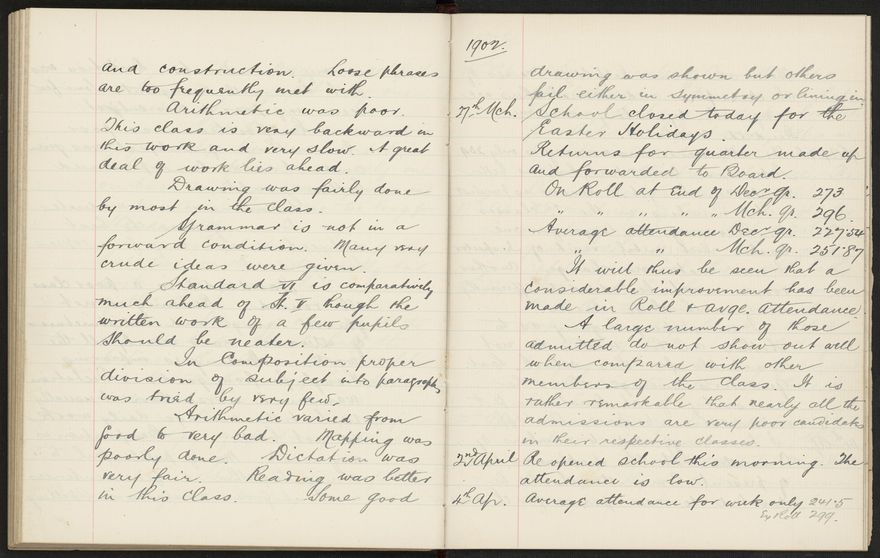 and construction. Loose phrases
are too frequently met with.
Arithmetic was poor.
This class is very backward in
this work and very slow. A great
deal of work lies ahead.
Drawing was fairly done
by most in the class.
Grammar is not in a
forward condition. Many very
crude ideas were given.
Standard VI is comparatively
much ahead of St. V though the
written work of a few pupils
should be neater.
In Composition proper
division of subject into paragraphs
was tried by very few.
Arithmetic varied from
good to very bad. Mapping was
poorly done. Dictation was
very fair. Reading was better
in this class. Some good
1902.
drawing was shown but others
fail either in symmetry or lining in.
27th Mch. School closed today for the
Easter Holidays.
Returns for quarter made up
and forwarded to Board.
On Roll at End of Decr qr. 273
" " " " " Mch. qr. 296.
Average attendance Decr qr. 227.54
" " Mch. qr. 251.87
It will thus be seen that a
considerable improvement has been
made in Roll & avge. attendance.
A large number of those
admitted do not show out well
when compared with other
members of the class. It is
rather remarkable that nearly all the
admissions are very poor candidates
in their respective classes.
2nd April Re opened school this morning. The
attendance is low.
4th Ap. Average attendance for week only 241.5
Roll 299.